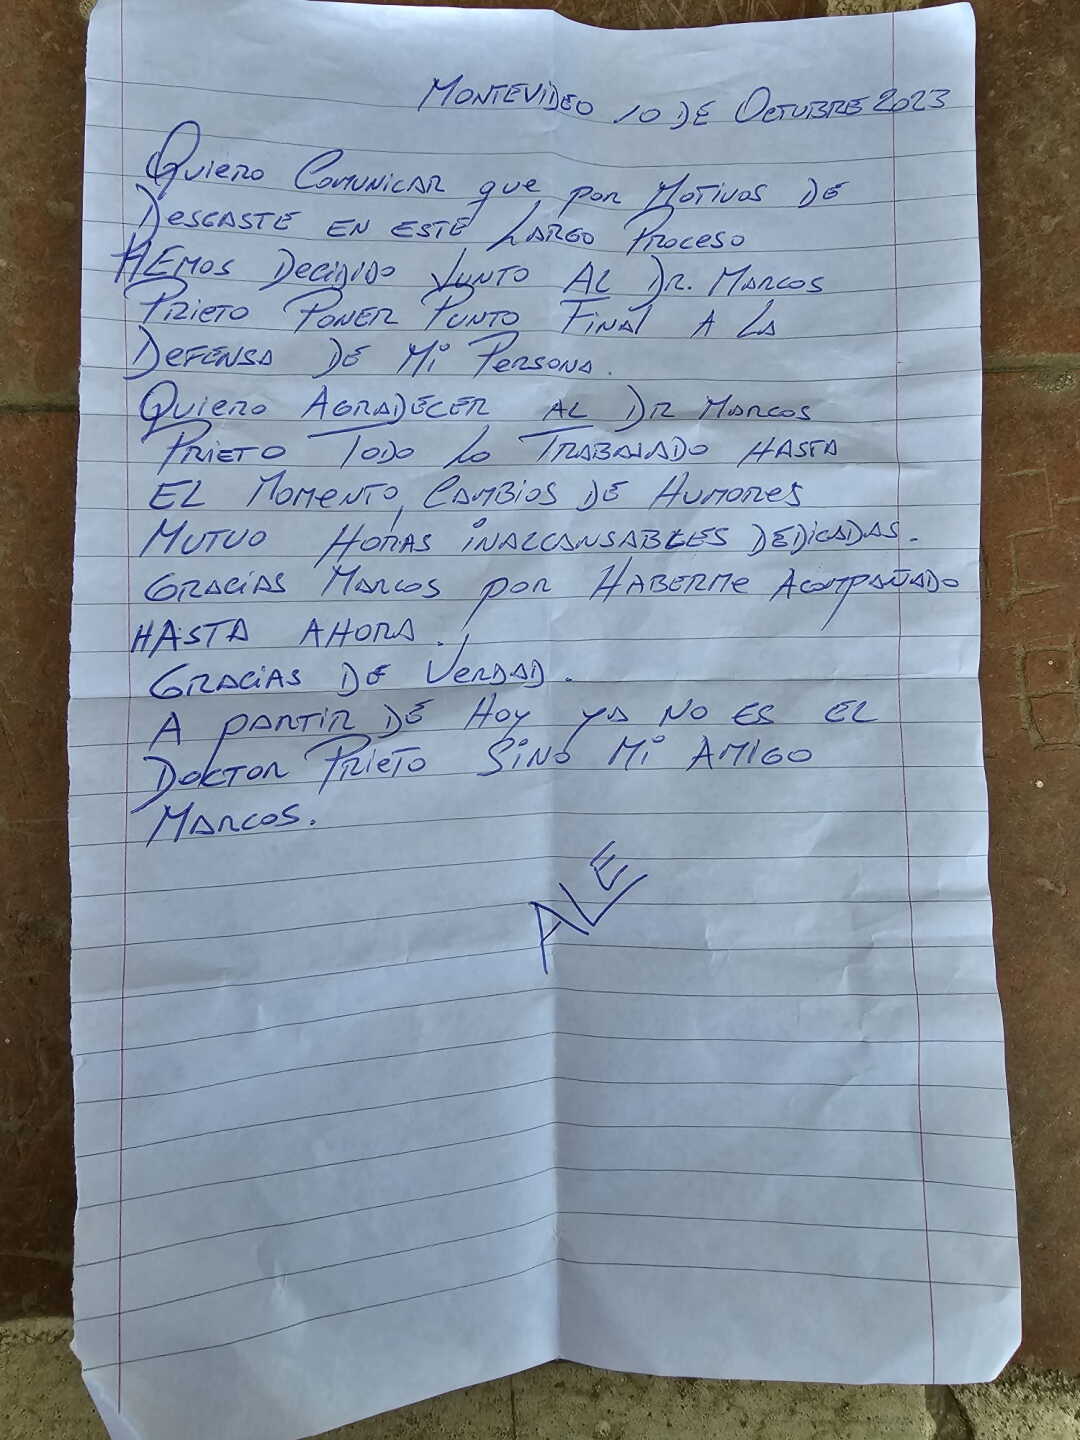 MONTEVIDEO 10 DE OCTUBRE 2023
QUIERO COMUNICAR que por MOTIVOS DE
DESGASTE EN ESTE LARGO PROCESO
HEMOS DECIDIDO JUNTO AL DR. MARCOS
PRIETO PONER PUNTO FINAL A LA
DEFENSA DE Mi PERSONA.
QUIERO AGRADECER AL DR MARCOS
PRIETO TODO LO TRABAJADO HASTA
EL MOMENTO, CAMBIOS DE HUMORES
MUTUO HORAS INALCANSABLES DEDICADAS.
GRACIAS MARCOS por HABERME ACOMPAÑADO
HASTA AHORA.
GRACIAS DE VERDAD.
A PARTIR DE HOY YA NO ES EL
DOKTOR PRIETO SINO MI AMIGO
MARCOS.
ALE